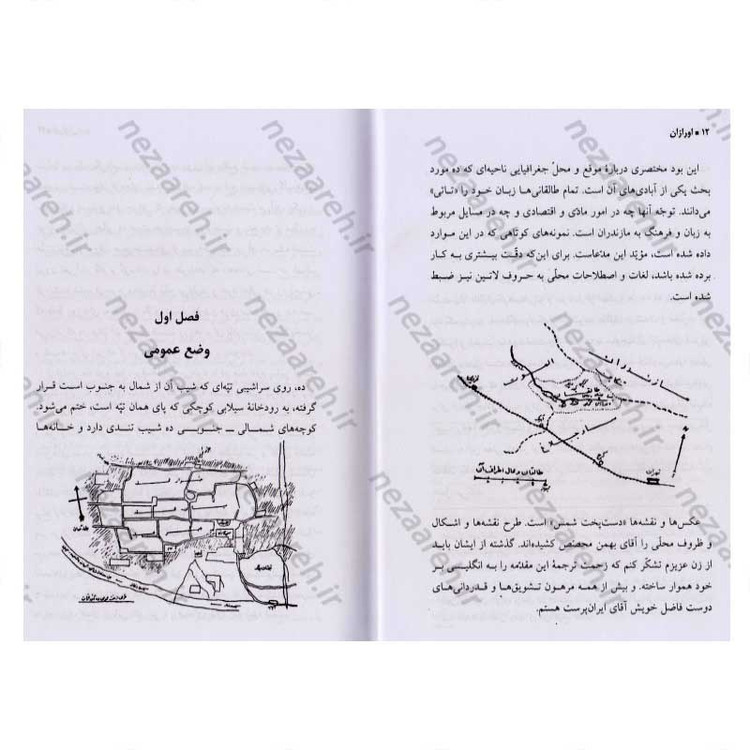 ۱۲ ■ اورازان
این بود مختصری دربارهٔ موقع و محلّ جغرافیایی ناحیه‌ای که ده مورد
بحث یکی از آبادی‌های آن است. تمام طالقانی‌ها زبان خود را «تاتی»
می‌دانند. توجّه آنها چه در امور مادّی و اقتصادی و چه در مسایل مربوط
به زبان و فرهنگ به مازندران است. نمونه‌های کوتاهی که در این موارد
داده شده است، مؤیّد این مدّعاست. برای این‌که دقّت بیشتری به کار
برده شده باشد، لغات و اصطلاحات محلّی به حروف لاتین نیز ضبط
شده است.
مازندران
طالقان و محال اطراف آن
تهران
عکس‌ها و نقشه‌ها «دست‌پخت شمس» است. طرح نقشه‌ها و اشکال
و ظروف محلّی را آقای بهمن محصّص کشیده‌اند. گذشته از ایشان باید
از زن عزیزم تشکّر کنم که زحمت ترجمهٔ این مقدّمه را به انگلیسی بر
خود هموار ساخته. و بیش از همه مرهون تشویق‌ها و قدردانی‌های
دوست فاضل خویش آقای ایران‌پرست هستم.
فصل اول
وضع عمومی
ده، روی سراشیبی تپّه‌ای که شیب آن از شمال به جنوب است قرار
گرفته، به رودخانهٔ سیلابی کوچکی که پای همان تپّه است، ختم می‌شود.
کوچه‌های شمالی ــ جنوبیی ده شیب تندی دارد و خانه‌ها
nezaareh.ir